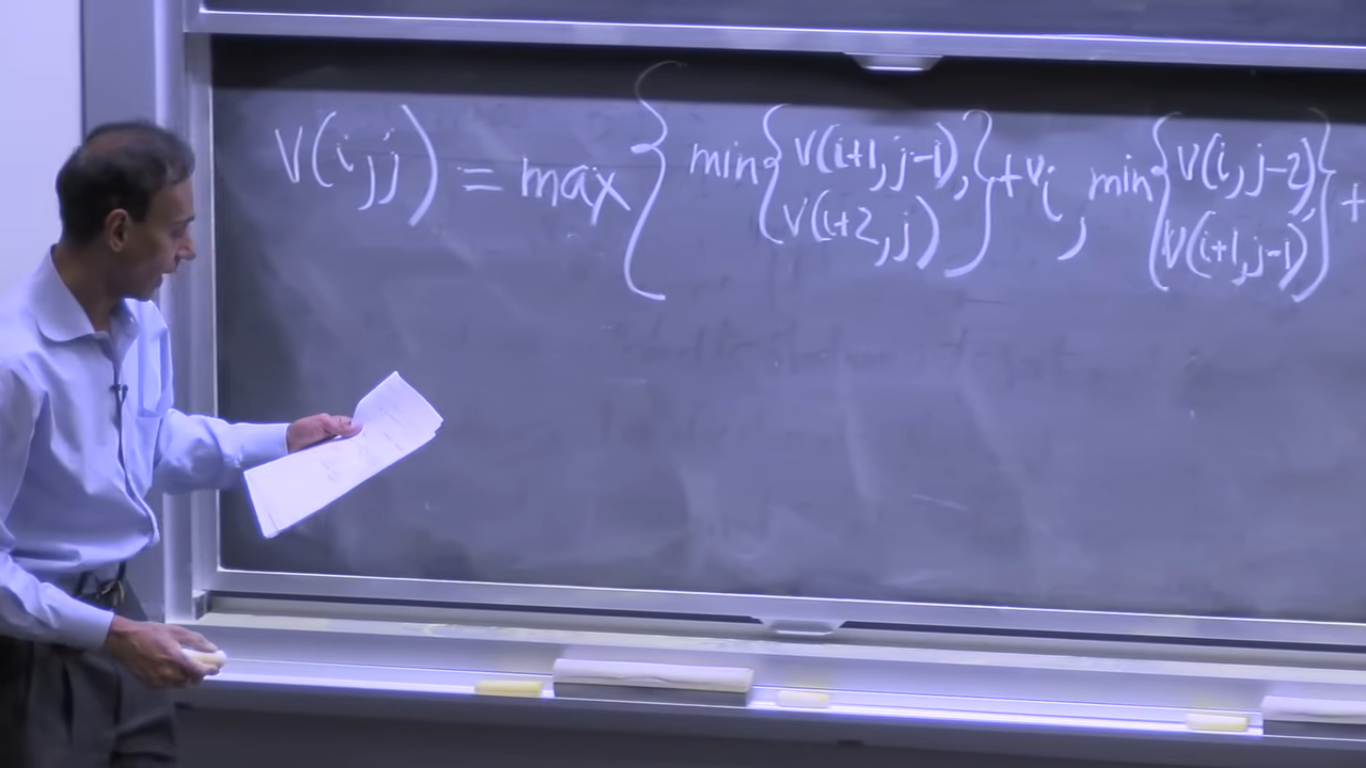 V(i,j) = max { min { V(i+1, j-1), V(i+2, j) } + v_i , min { V(i, j-2), V(i+1, j-1) } +